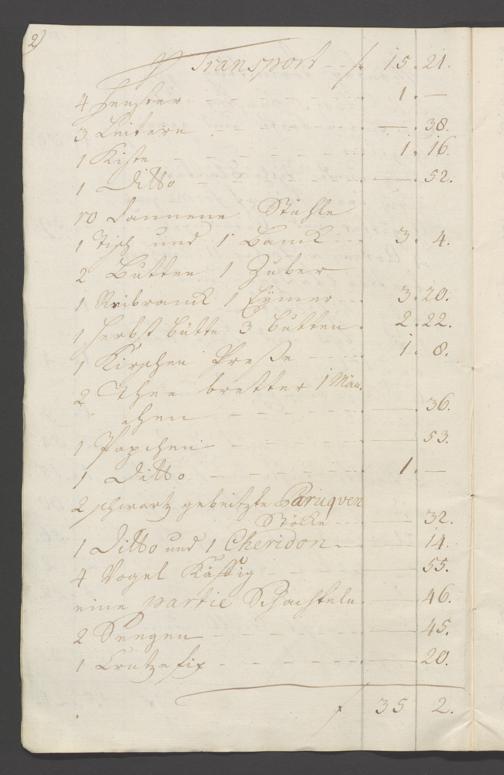 2)
Transport - - f 15. 21.
4 Fenster - - - - 1. —
3 Leitern - - - - —. 38.
1 Kiste - - - - 1. 16.
1 Ditto - - - - —. 52.
10 dannene Stühle
1 Tisch und 1 Banck - - 3. 4.
2 Butten 1 Zuber
1 1 Eymer - - 3. 20.
1 Herbst bütte 3 bütten - 2. 22.
1 Kirschen Preße - - - 1. 8.
2 Thee bretter 1 Män,,
chen - - - - —. 36.
1 - - - - —. 53.
1 Ditto - - - - 1. —
2 schwartz gebeitzte Paruqven
Stöcke - - —. 32.
1 Ditto und 1 Cheridon - —. 14.
4 Vogel Käffig - - - —. 55.
eine partie Schachteln - —. 46.
2 Seegen - - - - —. 45.
1 Crutzefix - - - - —. 20.
f 35 2.